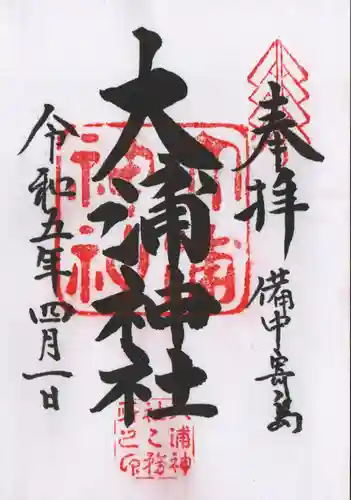 奉拝
備中寄島
大浦神社
令和五年四月一日
大浦神社
大浦神
社之務
所之印